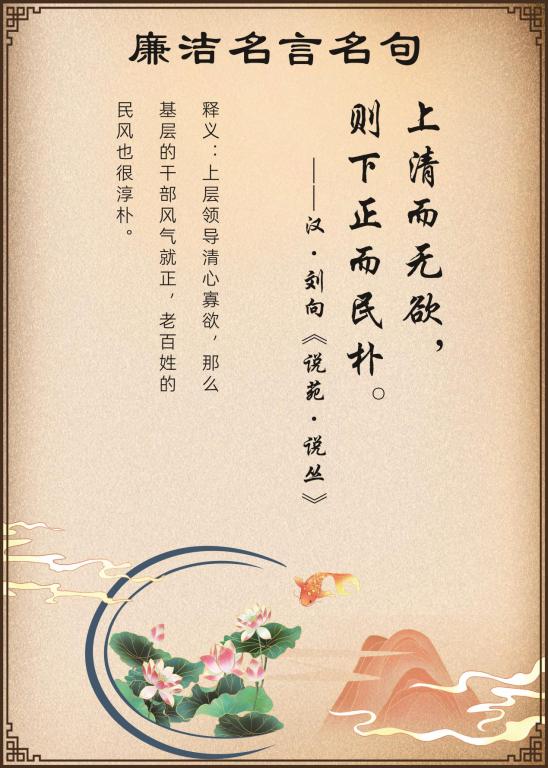 廉洁名言名句
上清而无欲，
则下正而民朴。
——汉·刘向《说苑·说丛》
释义：上层领导清心寡欲，那么
基层的干部风气就正，老百姓的
民风也很淳朴。